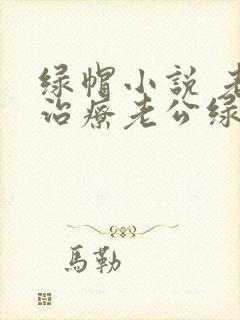 绿帽小说 老
治疗老公绿
馬勒